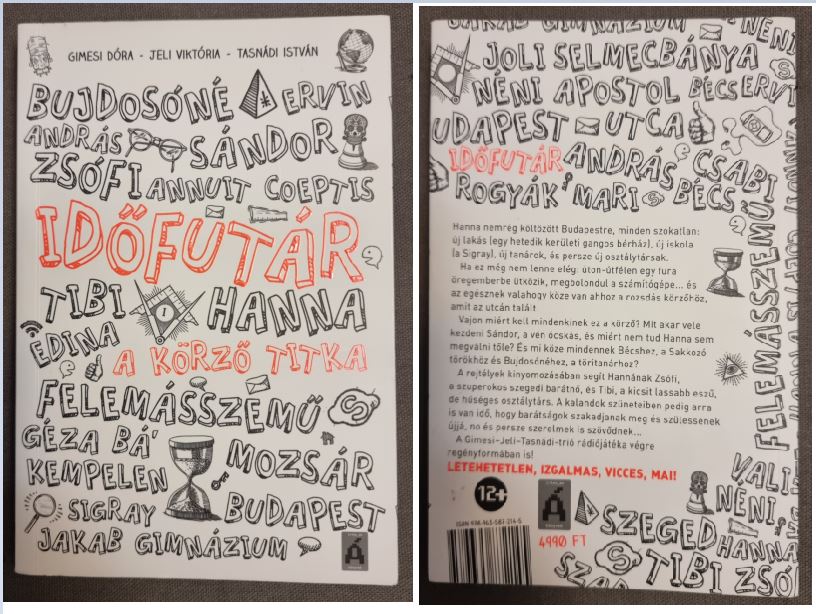 GIMESI DÓRA - JELI VIKTÓRIA - TASNÁDI ISTVÁN
BUJDOSÓNÉ ERVIN
ANDRÁS SÁNDOR
ZSÓFI ANNUIT COEPTIS
IDŐFUTÁR
TIBI HANNA
EDINA A KÖRZŐ TITKA
FELEMÁSSZEMŰ
GÉZA BÁ' MOZSÁR
KEMPELEN
SIGRAY BUDAPEST
JAKAB GIMNÁZIUM
JAKAB GIMNÁZIUM NÉNI
JOLI SELMECBÁNYA
NÉNI APOSTOL BÉCS ERVI
UDAPEST UTCA
IDŐFUTÁR ANDRÁS CSABI
ROGYÁK MARI BÉCS
FELEMÁSSZEMŰ
Hanna nemrég költözött Budapestre, minden szokatlan:
új lakás (egy hetedik kerületi gangos bérház), új iskola
(a Sigray), új tanárok, és persze új osztálytársak.
Ha ez még nem lenne elég: úton-útfélen egy fura
öregemberbe ütközik, megbolondul a számítógépe... és
az egésznek valahogy köze van ahhoz a rozsdás körzőhöz,
amit az utcán talált.
Vajon miért kell mindenkinek ez a körző? Mit akar vele
kezdeni Sándor, a vén ócskás, és miért nem tud Hanna sem
megválni tőle? És mi köze mindennek Bécshez, a Sakkozó
törökhöz és Bujdosónéhoz, a töritanárhoz?
A rejtélyek kinyomozásában segít Hannának Zsófi,
a szuperokos szegedi barátnő, és Tibi, a kicsit lassabb eszű,
de hűséges osztálytárs. A kalandok szüneteiben pedig arra
is van idő, hogy barátságok szakadjanak meg és szülessenek
újjá, no és persze szerelmek is szövődnek...
A Gimesi-Jeli-Tasnádi-trió rádiójátéka végre
regényformában is!
LETEHETETLEN, IZGALMAS, VICCES, MAI!
12+
VALI
NÉNI
ISBN 978-963-583-214-5
4990 FT
SZEGED HANNA
TIBI ZSÓ